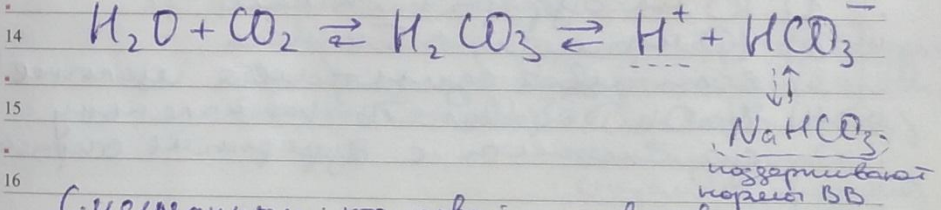 14 H₂O + CO₂ ⇌ H₂CO₃ ⇌ H⁺ + HCO₃⁻
↓↑
15 NaHCO₃
поддерживают
16 норела ВВ